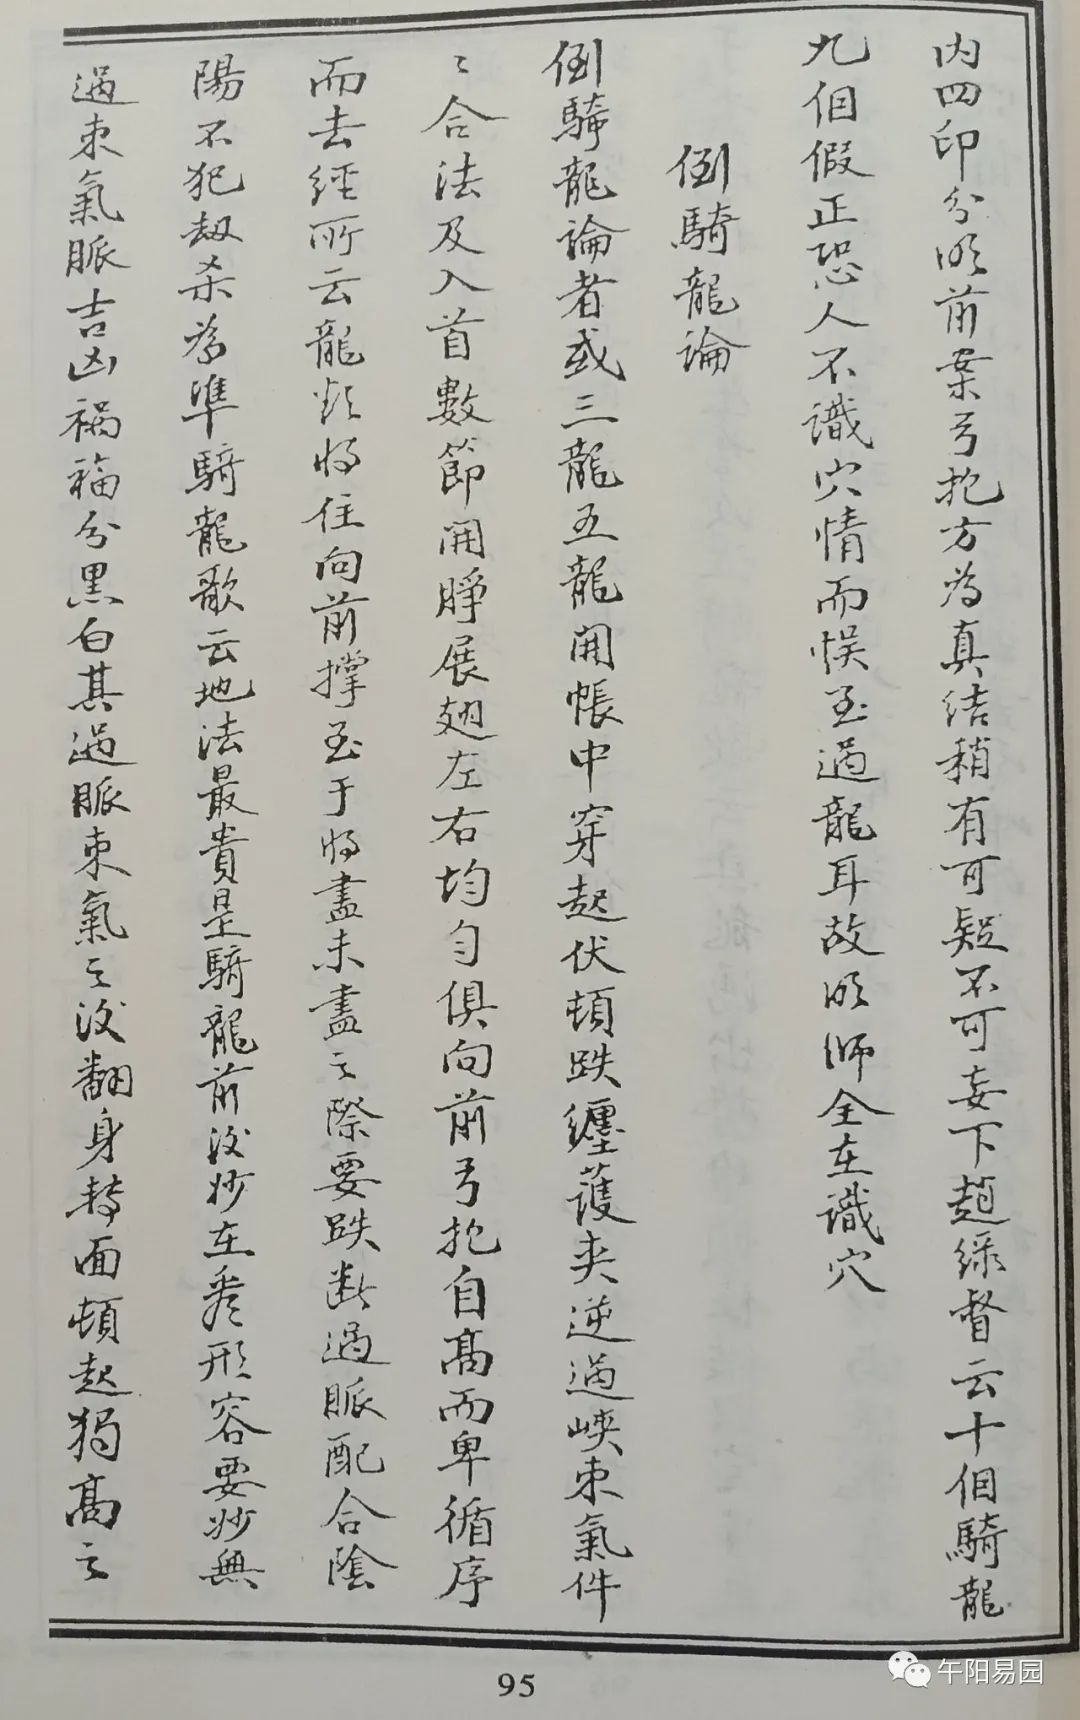 内四印分明前案弓抱方为真结稍有可疑不可妄下趙緑督云十個騎龍
九個假正恐人不識穴情而悮至過龍耳故明师全在識穴
倒騎龍論
倒騎龍論者或三龍五龍開帳中穿起伏頓跌纏護夾逆過峽束氣件
〻合法及入首數節開睜展翅左右均匀俱向前弓抱自高而卑循序
而去經所云龍欵将住向前撑至于将盡未盡之際要跌断過脈配合陰
陽不犯刼杀為準騎龍歌云地法最貴是騎龍前後妙在形容要妙無
過束氣脈吉凶禍福分黑白其過脈束氣之後翻身转面頓起獨高之
95
午阳易园